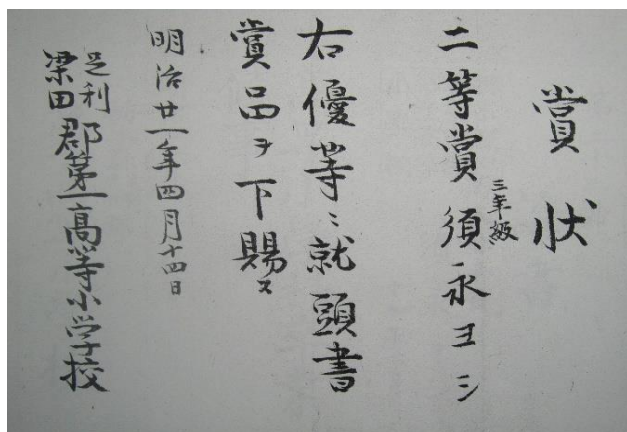 賞状
三年級
二等賞 須永ヨシ
右優等ニ就頭書
賞品ヲ下賜ス
明治廿一年四月十四日
足利
梁田
郡第一高等小学校